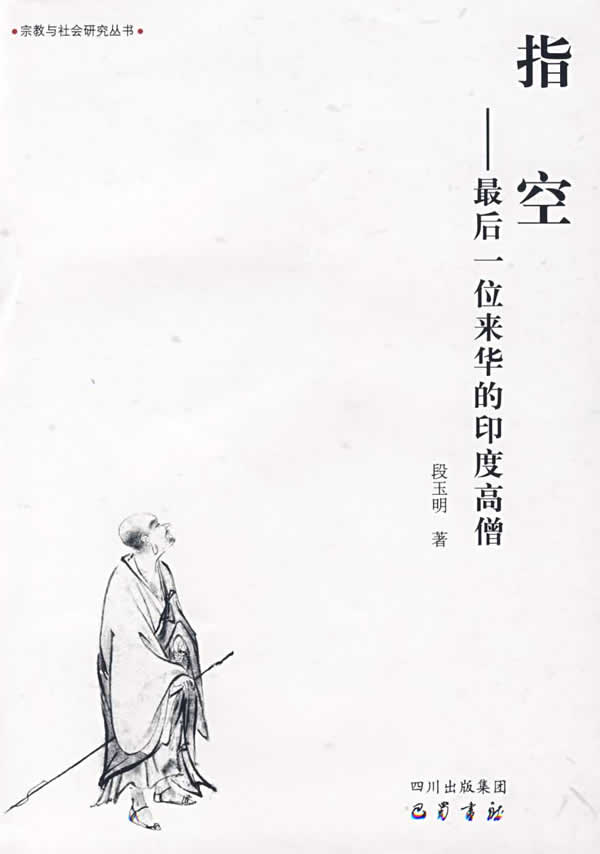 宗教与社会研究丛书
指空
——最后一位来华的印度高僧
段玉明 著
四川出版集团
巴蜀书社